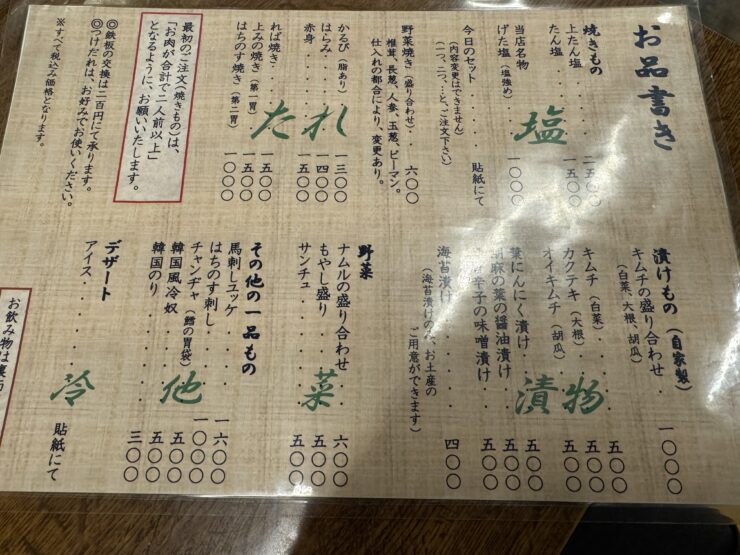 お品書き
焼きもの
上たん塩・・・・・二五〇〇
たん塩・・・・・一五〇〇
当店名物
げた塩（塩強め）・・・一〇〇〇
塩
今日のセット・・・・・貼紙にて
（内容変更はできません）
（一つ、二つ、…と、ご注文下さい）
野菜焼き（盛り合わせ）・・六〇〇
椎茸、長葱、人参、玉葱、ピーマン。
仕入れの都合により、変更あり。
たれ
かるび（脂あり）・・・一三〇〇
はらみ・・・・・一四〇〇
赤身・・・・・一五〇〇
れば焼き・・・・・
上みの焼き（第一胃）・・一五〇〇
はちのす焼き（第二胃）・・一〇〇〇
最初のご注文（焼きもの）は、
「お肉が合計で二人前以上」
となるように、お願いいたします。
◎鉄板の交換は二百円にて承ります。
◎つけだれは、お好みでお使いください。
※すべて税込み価格となります。
漬けもの（自家製）
キムチの盛り合わせ・・一〇〇〇
（白菜、大根、胡瓜）
キムチ（白菜）・・・五〇〇
カクテキ（大根）・・・五〇〇
オイキムチ（胡瓜）・・・五〇〇
漬物
葉にんにく漬け・・・五〇〇
胡麻の葉の醤油漬け・・五〇〇
辛子の味噌漬け・・五〇〇
海苔漬け・・・・・四〇〇
（海苔漬けのみ、お土産の
ご用意ができます）
野菜
ナムルの盛り合わせ・・六〇〇
もやし盛り・・・・・五〇〇
サンチュ・・・・・五〇〇
菜
その他の一品もの
馬刺しユッケ・・・・・一六〇〇
はちのす刺し・・・・・一〇〇〇
チャンヂャ（鱈の胃袋）・・五〇〇
韓国風冷奴・・・・・五〇〇
韓国のり・・・・・三〇〇
他
デザート
アイス・・・・・貼紙にて
冷
お飲み物は